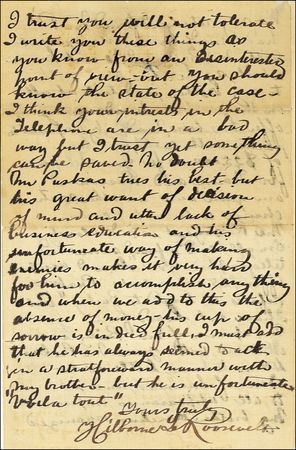 I trust you will not tolerate
I write you these things as
you know from an Disinterested
point of view – but you should
know the state of the case –
I think your intrests in the
Telephone are in a bad
way but I trust yet something
can be saved. No doubt
Mr Puskas tries his best but
his great want of decision
of mind and utter lack of
business education and his
unfortunate way of making
enemies makes it very hard
for him to acomplish anything
and when we add to this the
absence of money – his cup of
sorrow is indeed full, I must add
that he has always seemed to act
in a straitforward manner with
my brother – but he is unfortunate
"Voila tout"
Yours truly
Hilborne L Roosevelt